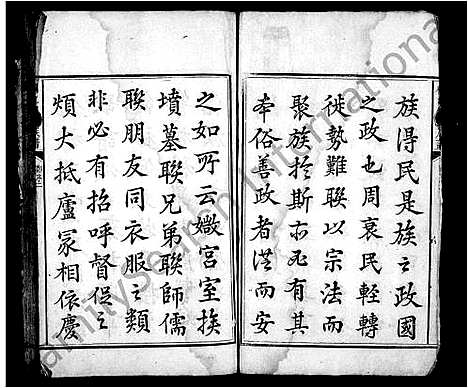 族得民是族之政國
之政也周衰民輕轉
徙勢難聯以宗法而
聚族於斯亦必有其
本俗善政者從而安
之如所云媺宮室族
墳墓聯兄弟聯師儒
聯朋友同衣服之類
非必有招呼督促之
煩大抵廬冢相依慶
FamilySearch International